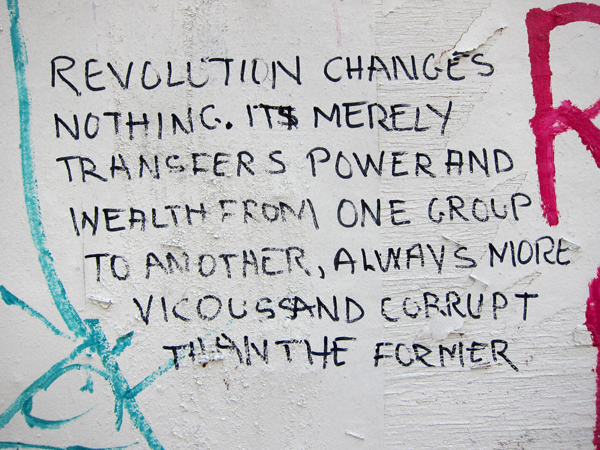 REVOLUTION CHANGES
NOTHING. ITS MERELY
TRANSFERS POWER AND
WEALTH FROM ONE GROUP
TO ANOTHER, ALWAYS MORE
VICOUS AND CORRUPT
THAN THE FORMER
R